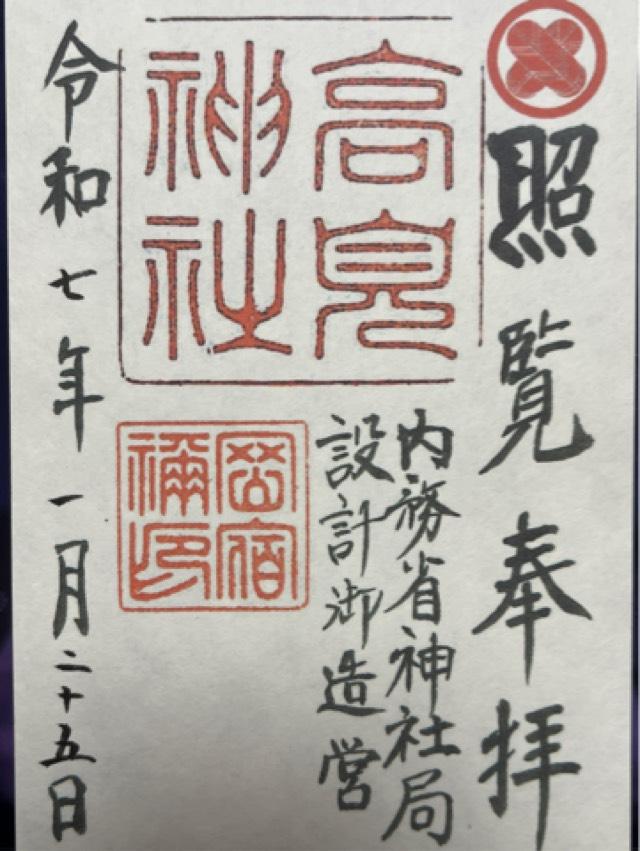 照覧奉拝
高見
神社
内務省神社局
設計御造営
岡宿
禰印
令和七年一月二十五日